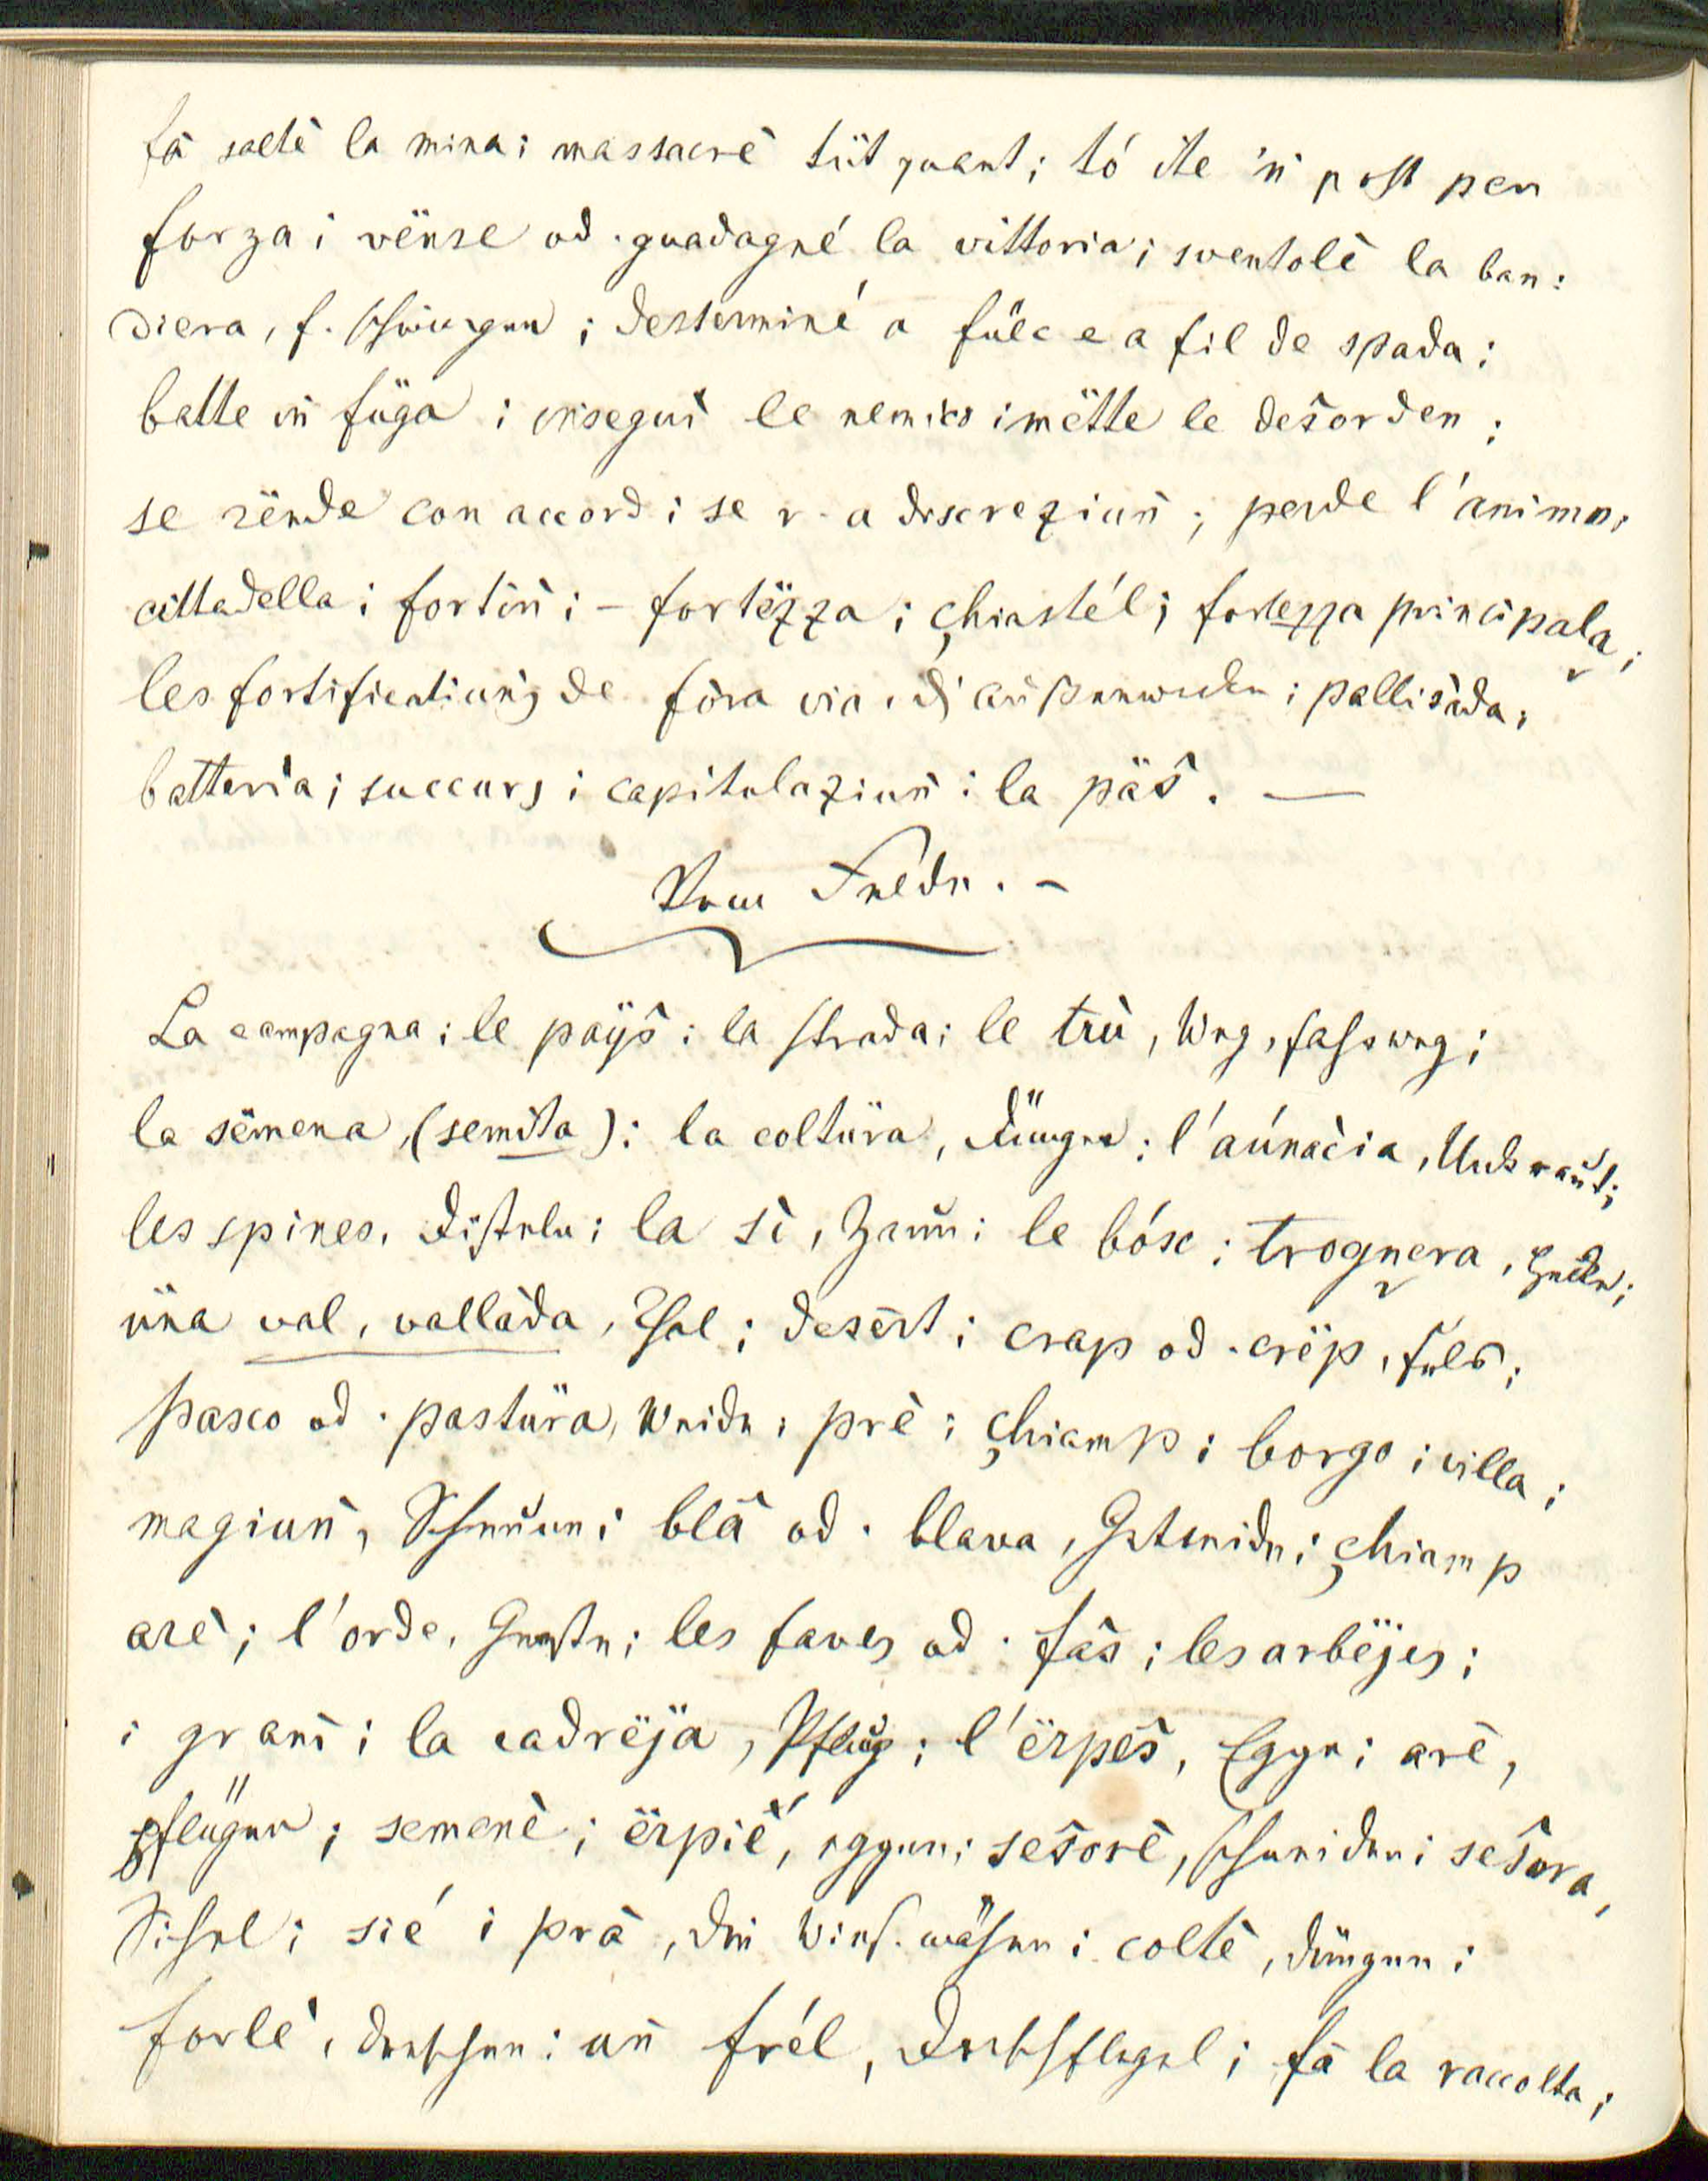 fà saltè la mina; massacrè tüt quant; tó ite 'ṅ post per
forza; vënse od. guadagné la vittoria; sventolè la ban:
diera, f. schwingen; desterminé a füle e a fil de spada;
batte iṅ füga; insegui le nemico; mëtte le desorden;
se rënde con accord; se r. a discreziuṅ; perde l'animo,
cittadella; fortiṅ; – fortëzza; çhiastél; fortezza principala;
les fortificatiuṅs de fora via, d' außenwerke; pallisàda;
batteria; succurs; capitulaziuṅ; la päš. —
Vom Felde. –
La campagna; le paÿš; la strada; le trù, Weg, fahrweg;
la sëmena, (semita); la coltüra, Dünger; l'aúnačia, Unkraut;
les spines, Disteln; la si, Zaun; le bósc; trognera, Hecke;
üna val, vallàda, Thal; desért; crap od. crëp, fels;
pasco od. pastüra, Weide; prè; çhiamp; borgo; villa;
magiuṅ, Scheune; blà od. blava, Getreide; çhiamp
arè; l'orde, Gerste; les faves od. fàs; les arbëjes;
i graṅs; la cadrëja, Pflug; l'ërpeš, Egge; arè,
pflügen; semenè; ërpié, eggen; sešorè, schneiden; sešora,
Sichel; sié i prà, die Wies. mähen; coltè, düngen;
forlè, dreschen; uṅ frél, Dreschflegel; fà la raccolta;